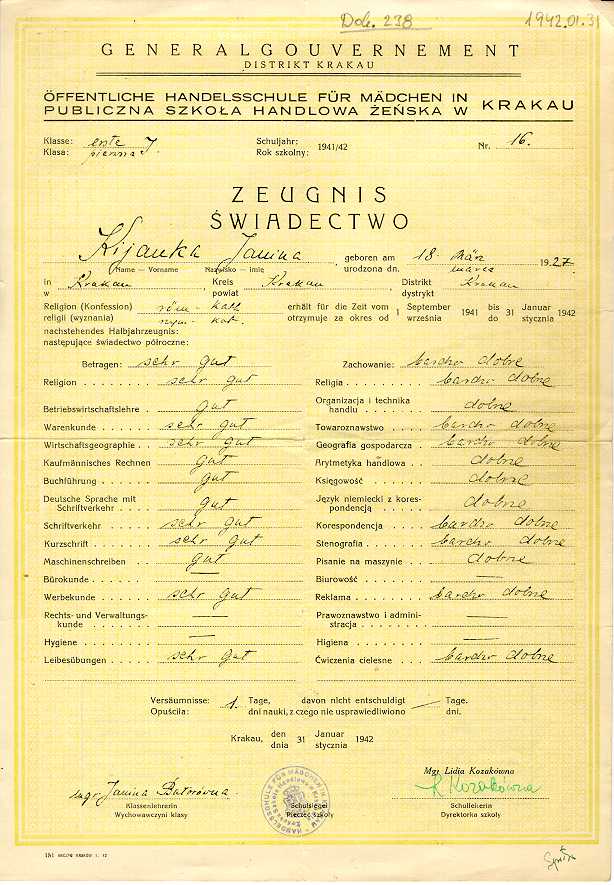 Dok. 238 1942.01.31
GENERALGOUVERNEMENT
DISTRIKT KRAKAU
ÖFFENTLICHE HANDELSSCHULE FÜR MÄDCHEN IN KRAKAU
PUBLICZNA SZKOŁA HANDLOWA ŻEŃSKA W
Klasse: erste I Schuljahr: 1941/42 Nr. 16.
Klasa: pierwsza Rok szkolny:
ZEUGNIS
ŚWIADECTWO
Kijanka Janina, geboren am 18 März 1927.
Name — Vorname Nazwisko — imię urodzona dn. marca
in Krakau Kreis Krakau Distrikt Krakau
w powiat dystrykt
Religion (Konfession) röm.-kath. erhält für die Zeit vom 1 September 1941 bis 31 Januar 1942
religii (wyznania) rzym.-kat. otrzymuje za okres od września do stycznia
nachstehendes Halbjahrzeugnis:
następujące świadectwo półroczne:
Betragen: sehr gut Zachowanie: bardzo dobre
Religion sehr gut Religia bardzo dobre
Betriebswirtschaftslehre gut Organizacja i technika handlu dobre
Warenkunde sehr gut Towaroznawstwo bardzo dobre
Wirtschaftsgeographie sehr gut Geografia gospodarcza bardzo dobre
Kaufmännisches Rechnen gut Arytmetyka handlowa dobre
Buchführung gut Księgowość dobre
Deutsche Sprache mit Schriftverkehr gut Język niemiecki z korespondencją dobre
Schriftverkehr sehr gut Korespondencja bardzo dobre
Kurzschrift sehr gut Stenografia bardzo dobre
Maschinenschreiben gut Pisanie na maszynie dobre
Bürokunde — Biurowość —
Werbekunde sehr gut Reklama bardzo dobre
Rechts- und Verwaltungskunde — Prawoznawstwo i administracja —
Hygiene — Higiena —
Leibesübungen sehr gut Ćwiczenia cielesne bardzo dobre
Versäumnisse: 1. Tage, davon nicht entschuldigt — Tage.
Opuściła: dni nauki, z czego nie usprawiedliwiono dni.
Krakau, den 31 Januar 1942
dnia stycznia
Mgr Lidia Kozakówna
mgr Janina Batorówna K Kozakówna
Klassenlehrerin Schulsiegel Schulleiterin
Wychowawczyni klasy Pieczęć szkoły Dyrektorka szkoły